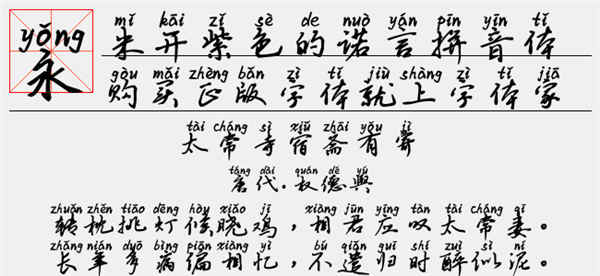 yǒng
永
mǐ kāi zǐ sè de nuò yán pīn yīn tǐ
米开紫色的诺言拼音体
gòu mǎi zhèng bǎn zì tǐ jiù shàng zì tǐ jiā
购买正版字体就上字体家
tài cháng sì xiǔ zhāi yǒu jì
太常寺宿斋有寄
táng dài quán dé yú
唐代·权德舆
zhuǎn zhěn tiāo dēng hòu xiǎo jī xiàng jūn yīng tàn tài cháng qī
转枕挑灯候晓鸡，相君应叹太常妻。
zhǎng nián duō bìng piān xiàng yì bù qiǎn guī shí zuì sì ní
长年多病偏相忆，不遣归时醉似泥。